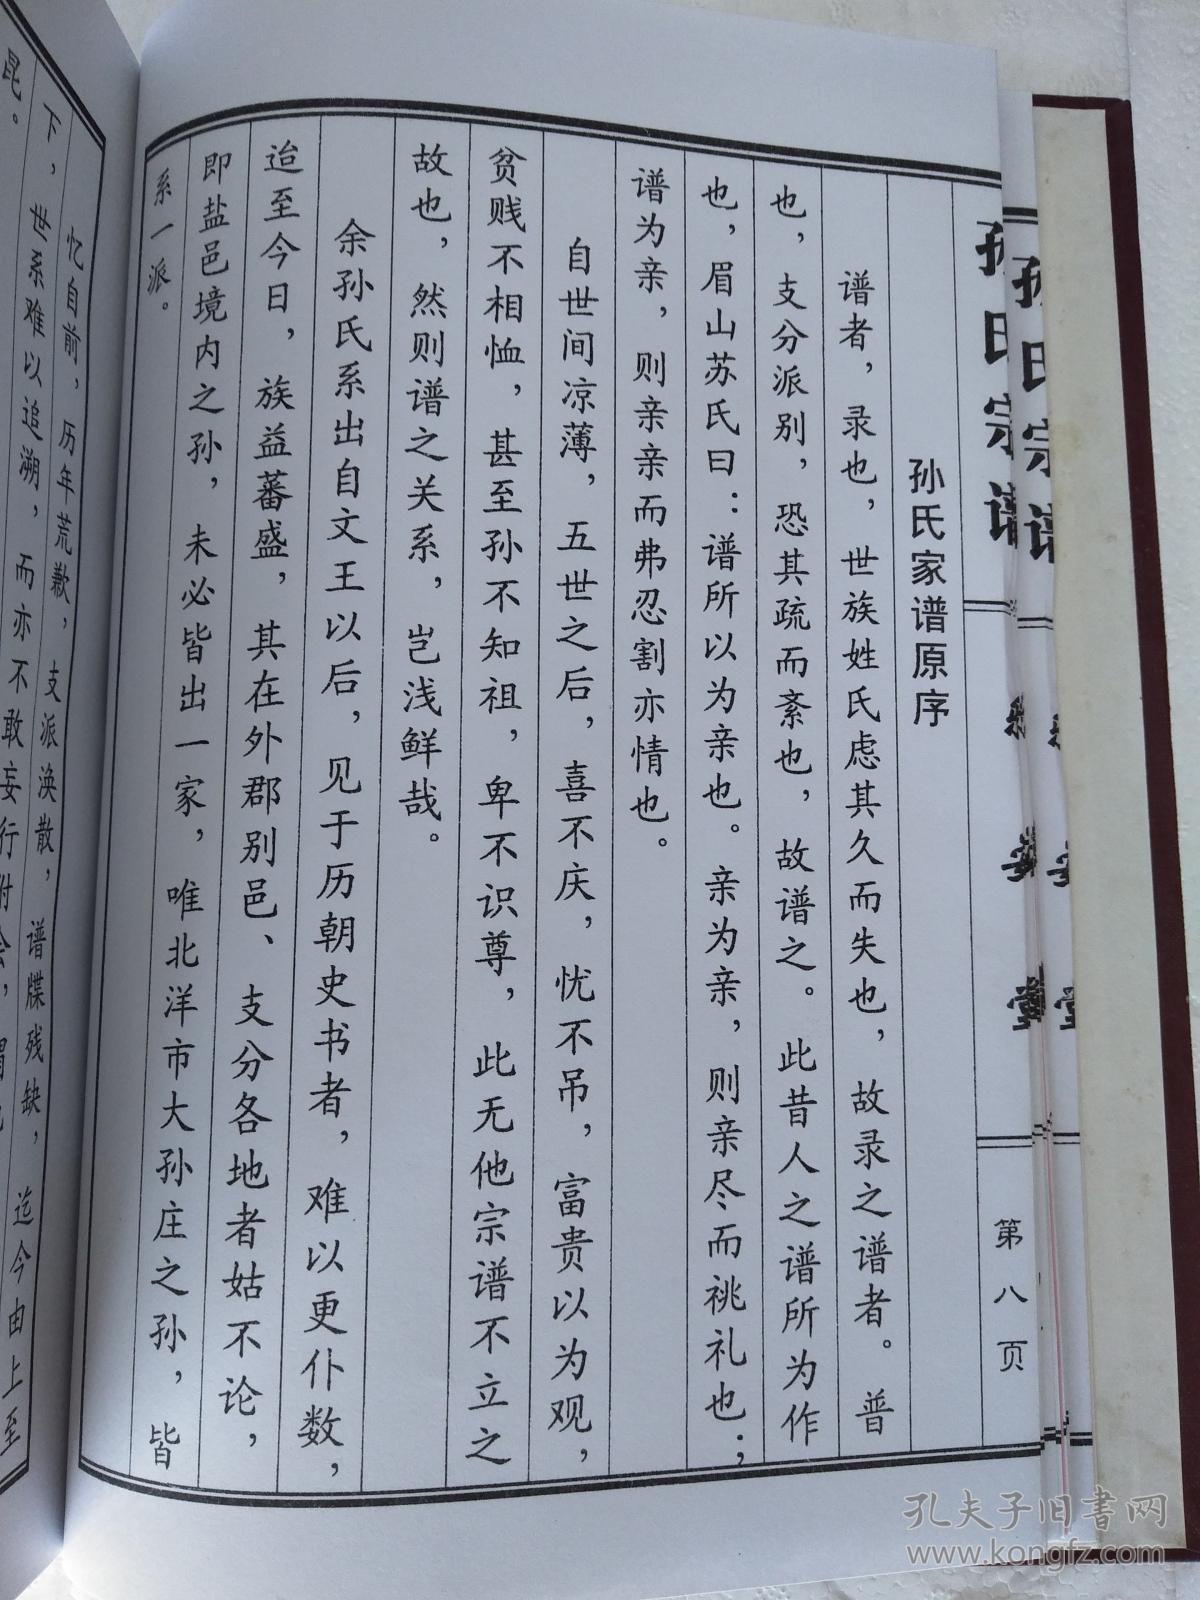 孙氏宗谱
第八页
孙氏家谱原序
谱者，录也，世族姓氏虑其久而失也，故录之谱者。普
也，支分派别，恐其疏而紊也，故谱之。此昔人之谱所为作
也，眉山苏氏曰：谱所以为亲也。亲为亲，则亲尽而祧礼也；
谱为亲，则亲亲而弗忍割亦情也。
自世间凉薄，五世之后，喜不庆，忧不吊，富贵以为观，
贫贱不相恤，甚至孙不知祖，卑不识尊，此无他宗谱不立之
故也，然则谱之关系，岂浅鲜哉。
余孙氏系出自文王以后，见于历朝史书者，难以更仆数，
迨至今日，族益蕃盛，其在外郡别邑、支分各地者姑不论，
即盐邑境内之孙，未必皆出一家，唯北洋市大孙庄之孙，皆
系一派。
忆自前，历年荒歉，支派涣散，谱牒残缺，迄今由上至
下，世系难以追溯，而亦不敢妄行附会，
昆。
孔夫子旧书网
www.kongfz.com